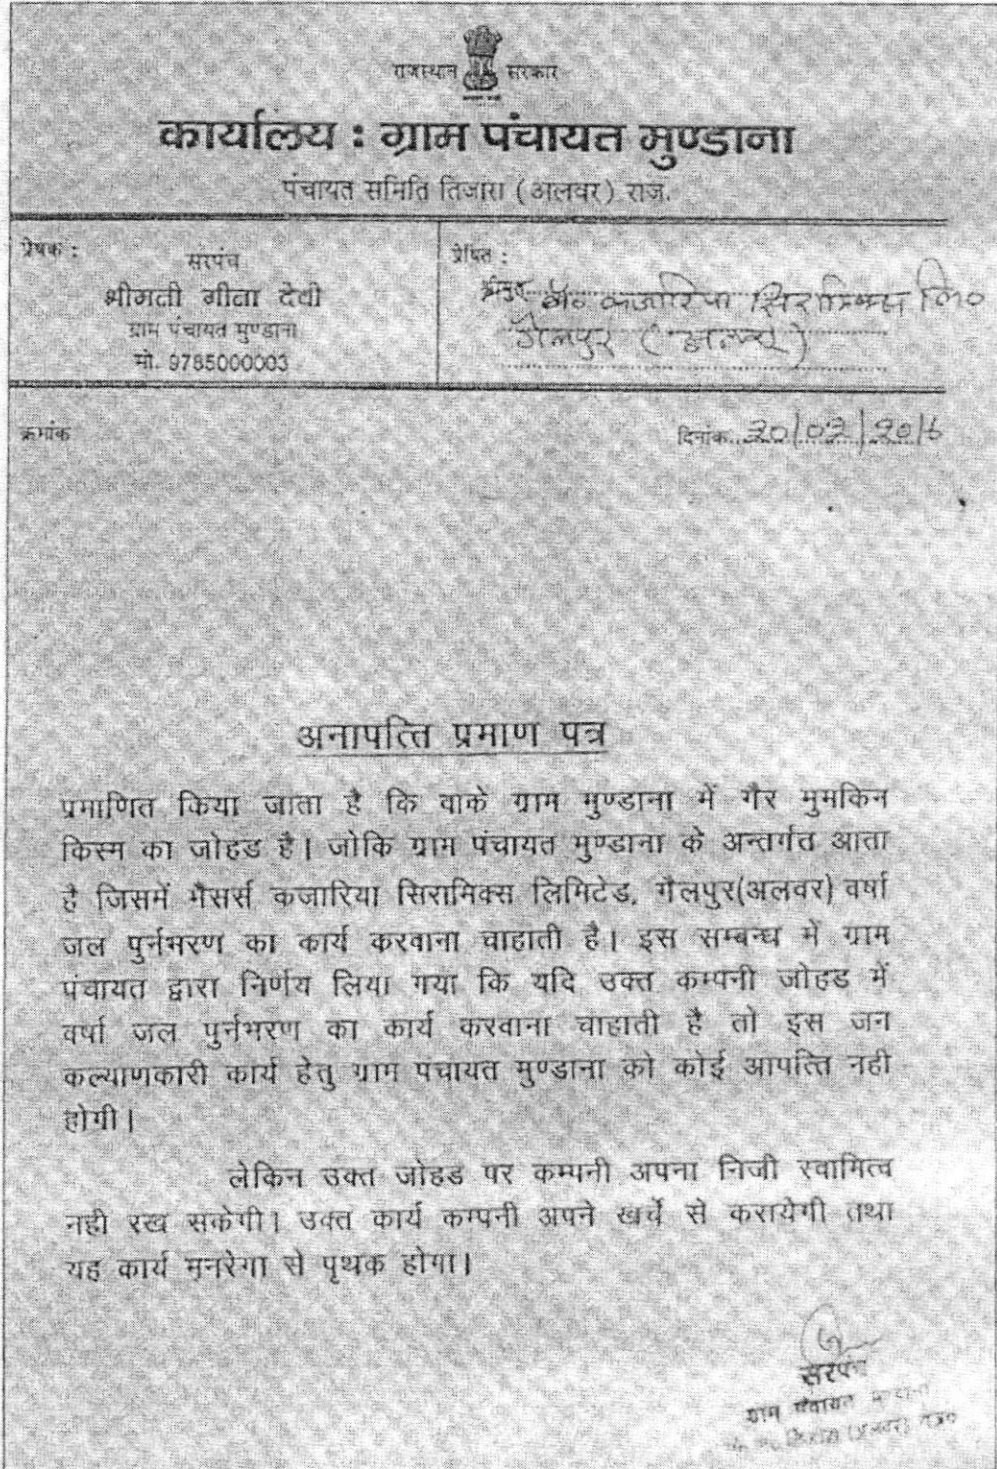 राजस्थान सरकार
कार्यालय : ग्राम पंचायत मुण्डाना
पंचायत समिति तिजारा (अलवर) राज.
प्रेषक :
सरपंच
श्रीमती गीता देवी
ग्राम पंचायत मुण्डाना
मो. 9785000003
प्रेषित :
श्रीमान् मै० कजारिया सिरामिक्स लि०
गैलपुर (अलवर)
क्रमांक
दिनांक 20/02/2016
अनापत्ति प्रमाण पत्र
प्रमाणित किया जाता है कि वाके ग्राम मुण्डाना में गैर मुमकिन
किस्म का जोहड है। जोकि ग्राम पंचायत मुण्डाना के अन्तर्गत आता
है जिसमें मैसर्स कजारिया सिरामिक्स लिमिटेड, गैलपुर(अलवर) वर्षा
जल पुर्नभरण का कार्य करवाना चाहाती है। इस सम्बन्ध में ग्राम
पंचायत द्वारा निर्णय लिया गया कि यदि उक्त कम्पनी जोहड में
वर्षा जल पुर्नभरण का कार्य करवाना चाहाती है तो इस जन
कल्याणकारी कार्य हेतु ग्राम पंचायत मुण्डाना को कोई आपत्ति नही
होगी।
लेकिन उक्त जोहड पर कम्पनी अपना निजी स्वामित्व
नही रख सकेगी। उक्त कार्य कम्पनी अपने खर्चे से करायेगी तथा
यह कार्य मनरेगा से पृथक होगा।
सरपंच
ग्राम पंचायत
(अलवर) राज०